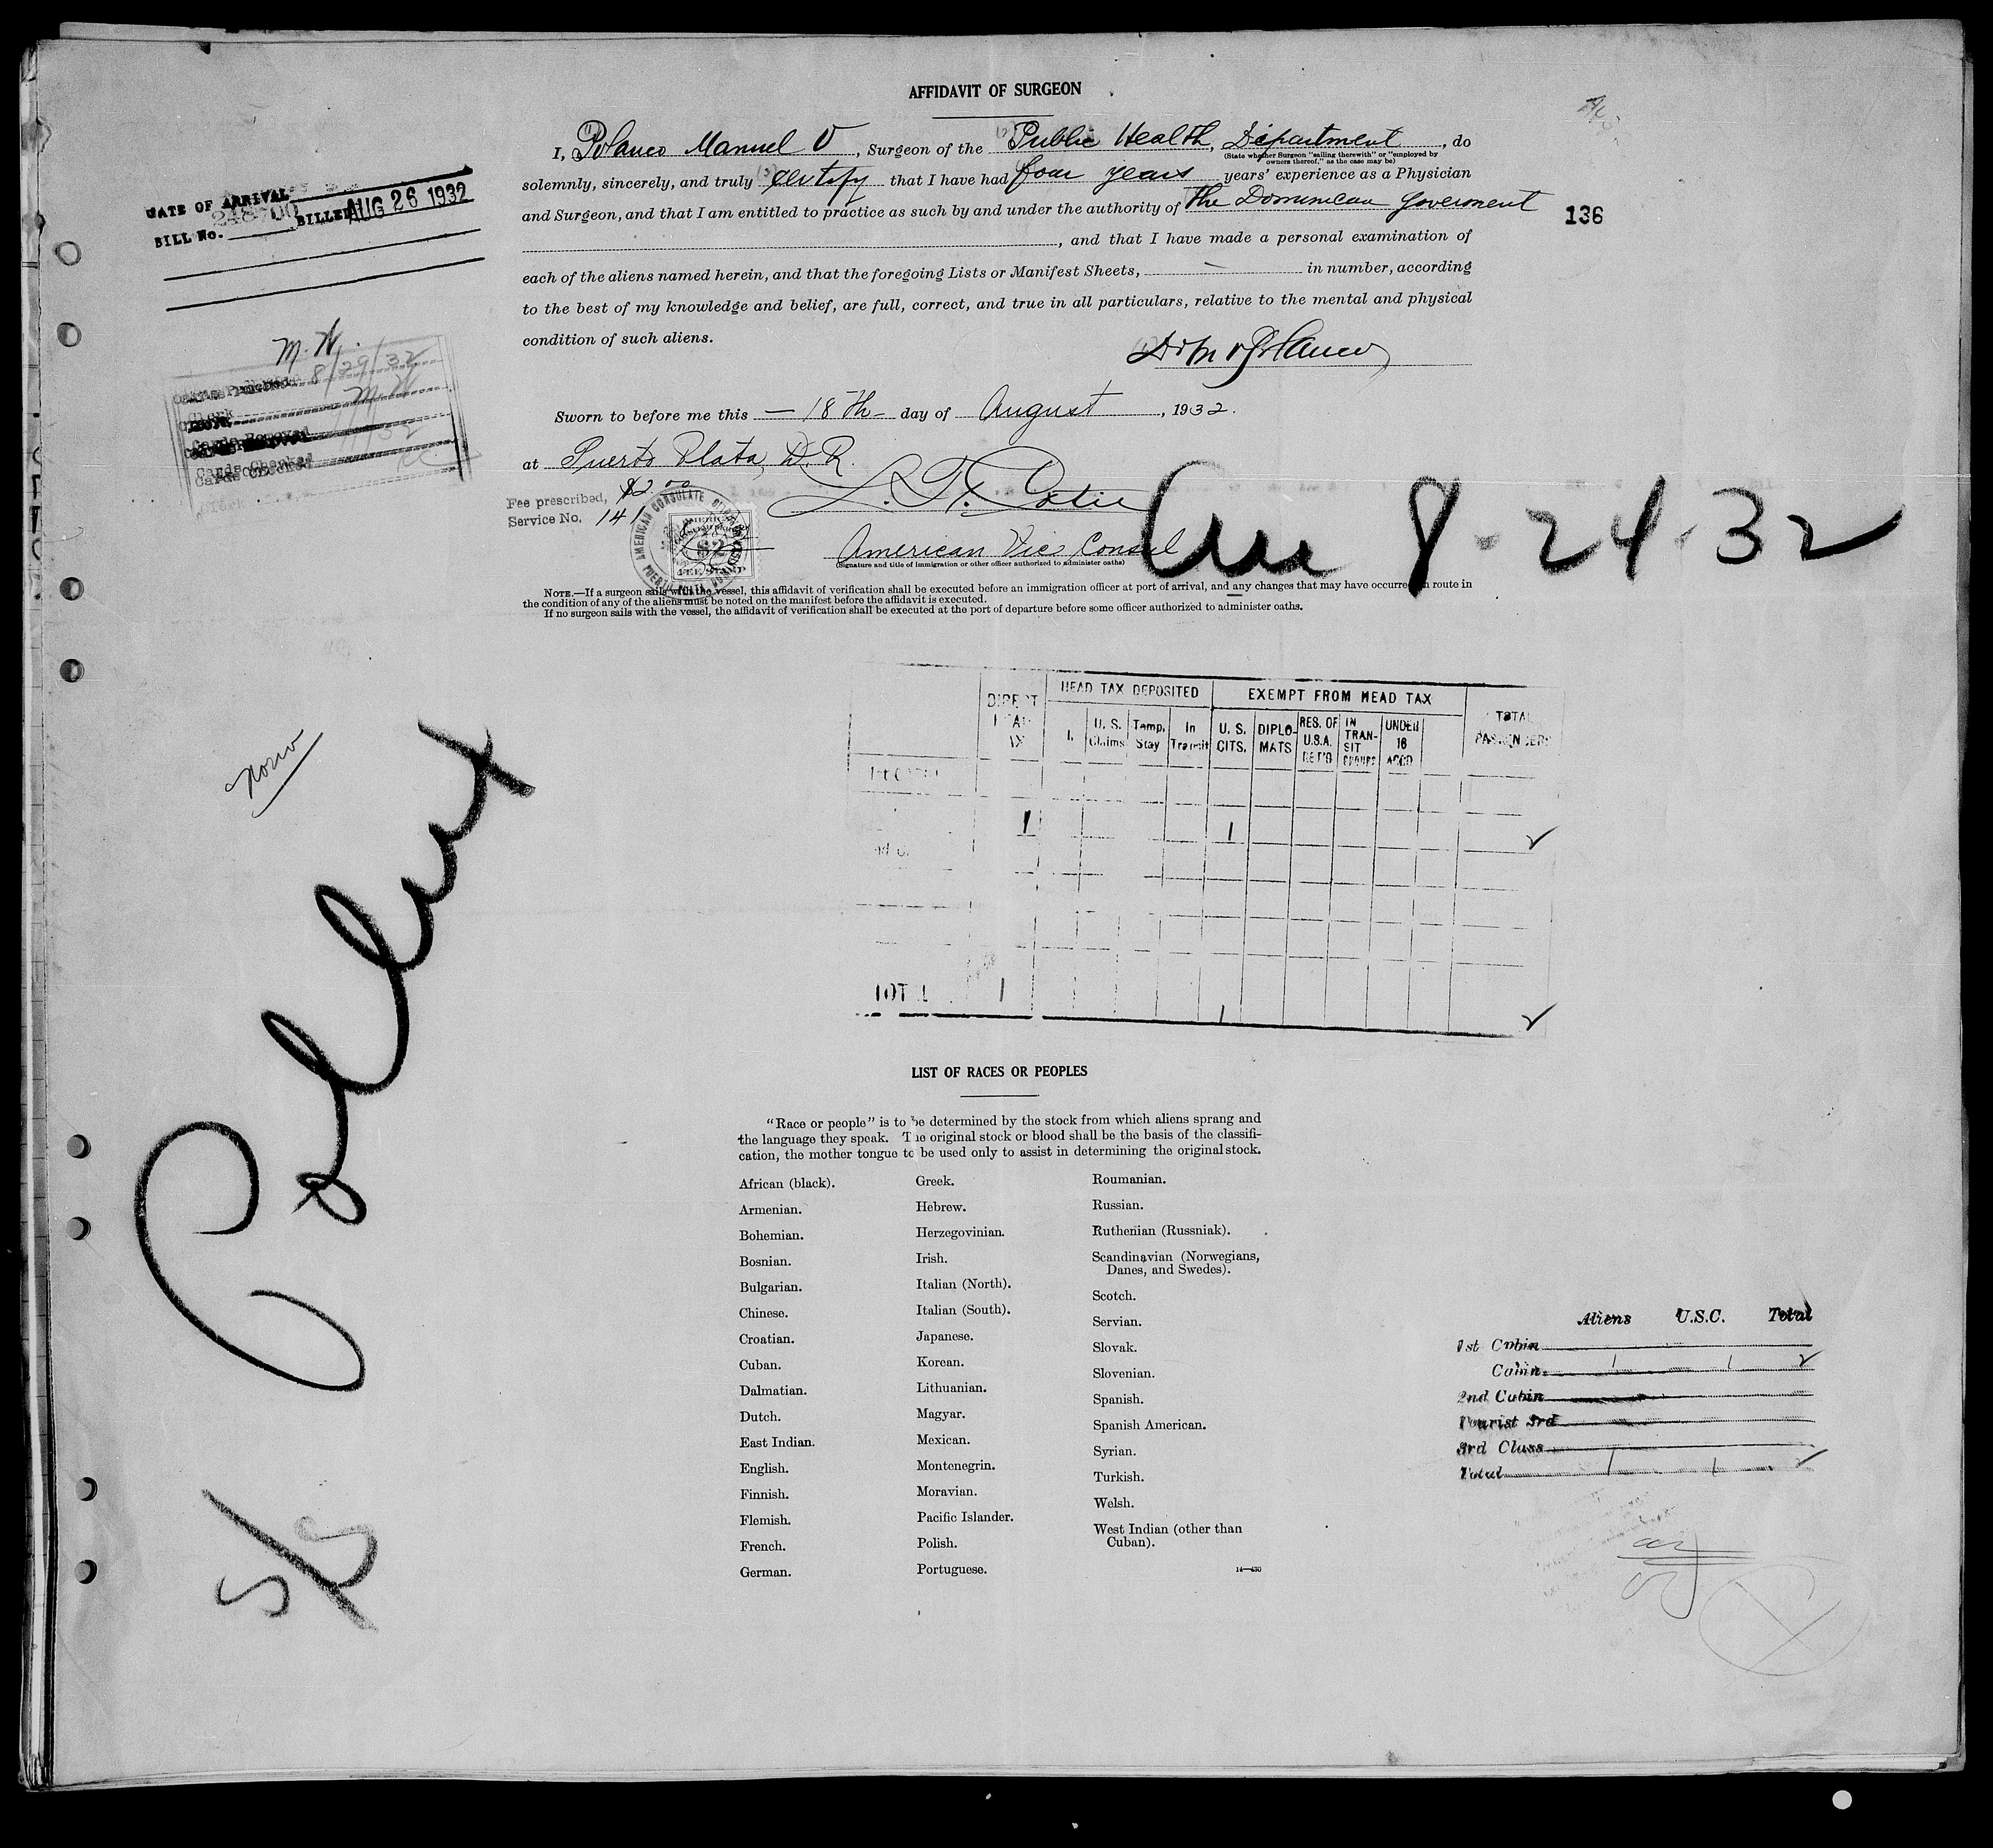 AFFIDAVIT OF SURGEON
I, Polanco Manuel V, Surgeon of the Public Health, Department, do
(State whether Surgeon "sailing therewith" or "employed by
owners thereof," as the case may be)
solemnly, sincerely, and truly certify that I have had four years years' experience as a Physician
and Surgeon, and that I am entitled to practice as such by and under the authority of The Dominican Goverment
136
, and that I have made a personal examination of
each of the aliens named herein, and that the foregoing Lists or Manifest Sheets, — in number, according
to the best of my knowledge and belief, are full, correct, and true in all particulars, relative to the mental and physical
condition of such aliens.
DATE OF ARRIVAL
248700
BILL No. BILLED AUG 26 1932
M. W.
8/29/32
M. W
Cards Checked
Sworn to before me this — 18th — day of August, 1932.
at Puerto Plata, D.R.
Fee prescribed, $2.00
Service No. 141
AMERICAN CONSULATE
$2
FEE STAMP
American Vice Consul
(Signature and title of immigration or other officer authorized to administer oaths)
8-24-32
NOTE.—If a surgeon sails with the vessel, this affidavit of verification shall be executed before an immigration officer at port of arrival, and any changes that may have occurred in route in
the condition of any of the aliens must be noted on the manifest before the affidavit is executed.
If no surgeon sails with the vessel, the affidavit of verification shall be executed at the port of departure before some officer authorized to administer oaths.
DIRECT HEAD TAX
HEAD TAX DEPOSITED
EXEMPT FROM HEAD TAX
TOTAL PASSENGERS
U. S. Claims
Temp. Stay
In Transit
U. S. CITS.
DIPLO-MATS
RES. OF U.S.A. RET'D
IN TRAN-SIT
UNDER 16 ACCD
1 1 2
TOTAL 1 1 2
S/S
LIST OF RACES OR PEOPLES
"Race or people" is to be determined by the stock from which aliens sprang and
the language they speak. The original stock or blood shall be the basis of the classifi-
cation, the mother tongue to be used only to assist in determining the original stock.
African (black).
Armenian.
Bohemian.
Bosnian.
Bulgarian.
Chinese.
Croatian.
Cuban.
Dalmatian.
Dutch.
East Indian.
English.
Finnish.
Flemish.
French.
German.
Greek.
Hebrew.
Herzegovinian.
Irish.
Italian (North).
Italian (South).
Japanese.
Korean.
Lithuanian.
Magyar.
Mexican.
Montenegrin.
Moravian.
Pacific Islander.
Polish.
Portuguese.
Roumanian.
Russian.
Ruthenian (Russniak).
Scandinavian (Norwegians,
Danes, and Swedes).
Scotch.
Servian.
Slovak.
Slovenian.
Spanish.
Spanish American.
Syrian.
Turkish.
Welsh.
West Indian (other than
Cuban).
14—430
Aliens U.S.C. Total
1st Cabin
Cabin 1 1 2
2nd Cabin
Tourist 3rd
3rd Class
Total 1 1 2